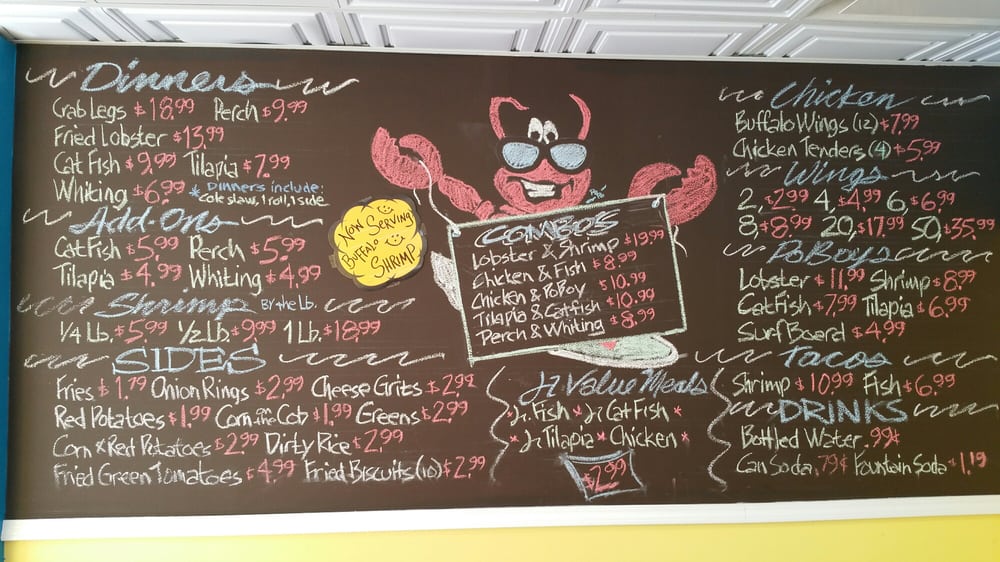 Dinners
Crab Legs $18.99 Perch $9.99
Fried Lobster $13.99
Cat Fish $9.99 Tilapia $7.99
Whiting $6.99 * Dinners include:
Cole slaw, 1 roll, 1 side
Add-Ons
CatFish $5.99 Perch $5.99
Tilapia $4.99 Whiting $4.99
Shrimp BY the Lb.
1/4 Lb. $5.99 1/2 Lb. $9.99 1 Lb. $18.99
SIDES
Fries $1.79 Onion Rings $2.99 Cheese Grits $2.99
Red Potatoes $1.99 Corn on the Cob $1.99 Greens $2.99
Corn & Red Potatoes $2.99 Dirty Rice $2.99
Fried Green Tomatoes $4.99 Fried Biscuits (10) $2.99
Now Serving
Buffalo
SHRIMP
COMBO'S
Lobster & Shrimp $19.99
Chicken & Fish $8.99
Chicken & PoBoy $10.99
Tilapia & Catfish $10.99
Perch & Whiting $8.99
Jr Value Meals
*Jr. Fish * Jr CatFish *
* Jr Tilapia * Chicken *
$2.99
Chicken
Buffalo Wings (12) $7.99
Chicken Tenders (4) $5.99
Wings
2, $2.99 4, $4.99 6, $6.99
8, $8.99 20, $17.99 50, $35.99
PoBoys
Lobster $11.99 Shrimp $8.99
CatFish $7.99 Tilapia $6.99
Surf Board $4.99
Tacos
Shrimp $10.99 Fish $6.99
DRINKS
Bottled Water .99¢
Can Soda .79¢ Fountain Soda $1.19